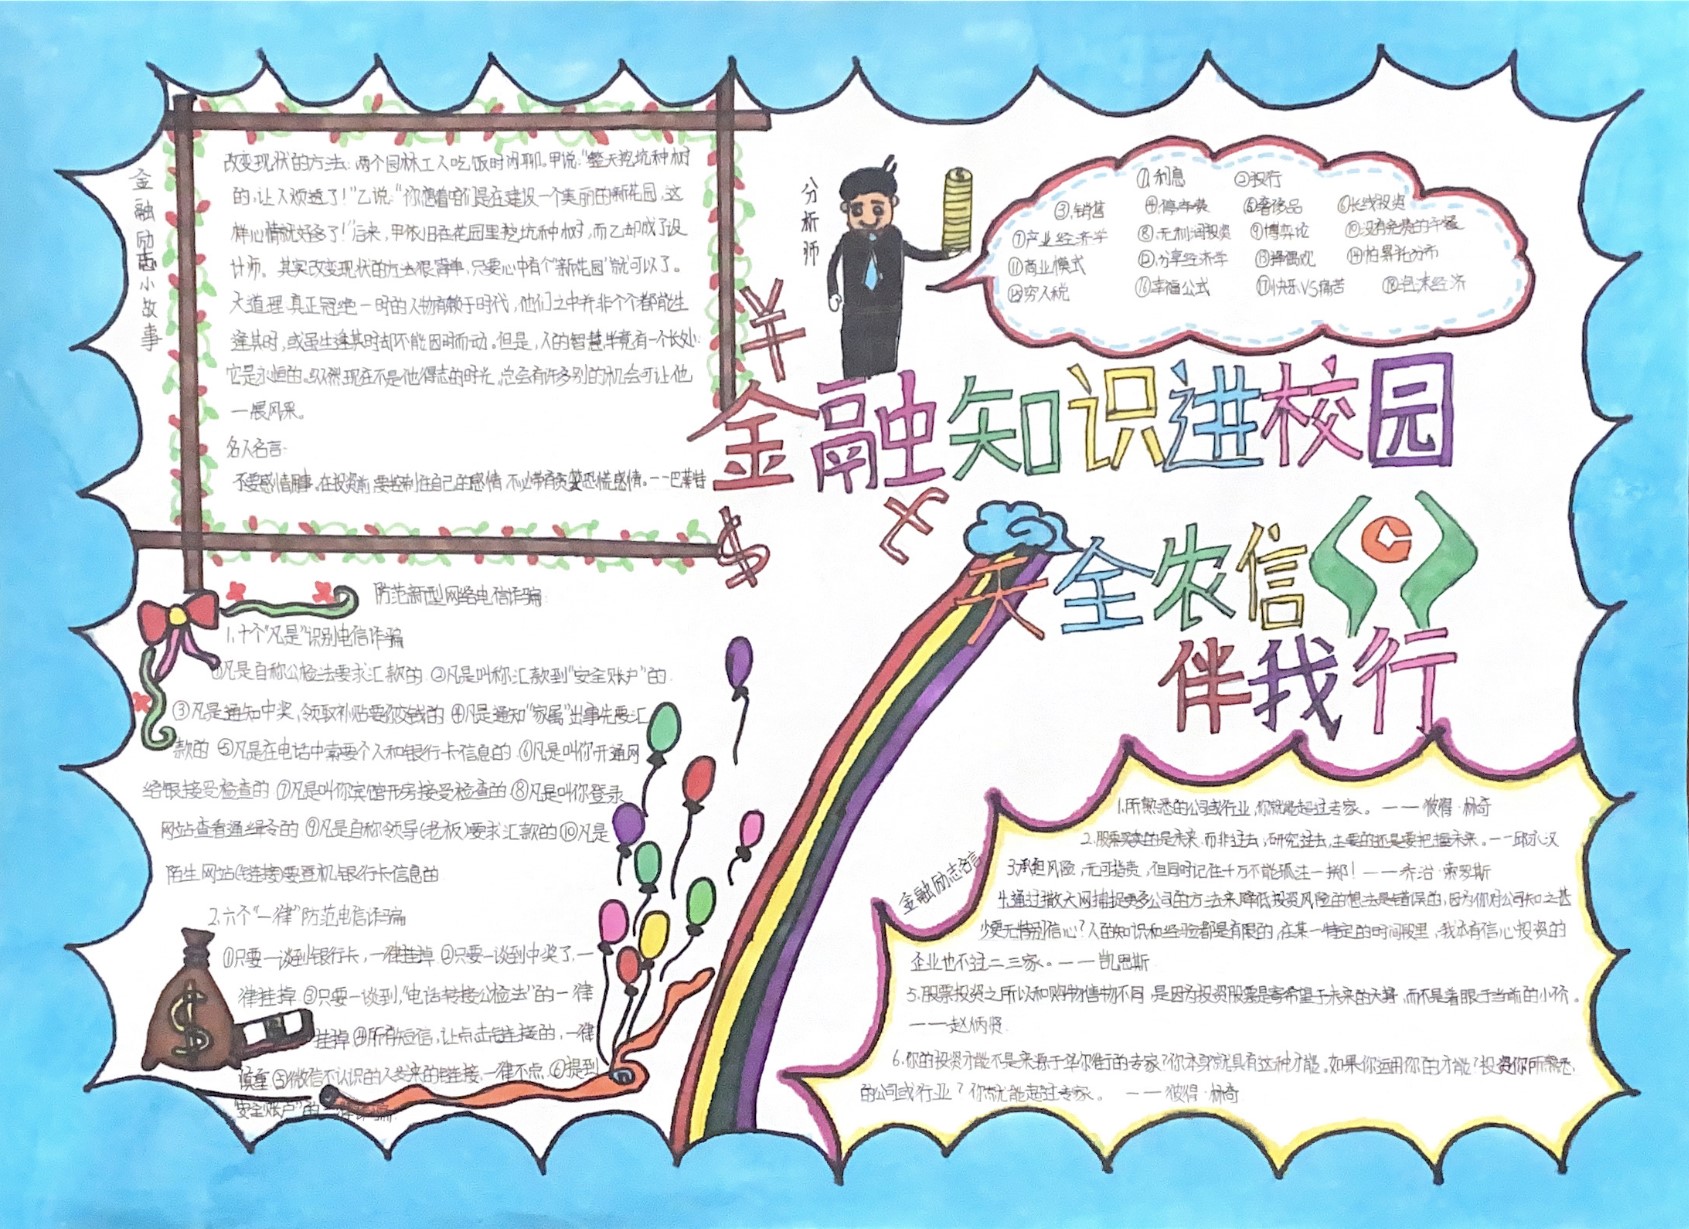 金融励志小故事
改变现状的方法：两个园林工人吃饭时闲聊。甲说：“整天挖坑种树
的，让人烦透了！”乙说：“你想着咱们是在建设一个美丽的新花园，这
样心情就好多了！”后来，甲依旧在花园里挖坑种树，而乙却成了设
计师。其实改变现状的方法很简单，只要心中有个“新花园”就可以了。
大道理：真正冠绝一时的人物有赖于时代，他们之中并非个个都能生
逢其时，或虽生逢其时却不能因时而动。但是，人的智慧毕竟有一个长处：
它是永恒的。纵然现在不是他得志的时光，总会有许多别的机会可让他
一展风采。
名人名言：
不要感情用事。在投资前，要控制住自己的感情，不必带有贪婪恐慌感情。——巴菜特
分析师
①利息 ②投行
③销售 ④停车费 ⑤奢侈品 ⑥长线投资
⑦产业经济学 ⑧无利润投资 ⑨博弈论 ⑩没有免费的午餐
⑪商业模式 ⑫分享经济学 ⑬择偶观 ⑭帕累托分布
⑮穷人税 ⑯幸福公式 ⑰快乐VS痛苦 ⑱泡沫经济
金融知识进校园
天全农信
伴我行
防范新型网络电信诈骗
1.十个“凡是”识别电信诈骗
①凡是自称公检法要求汇款的 ②凡是叫你汇款到“安全账户”的
③凡是通知中奖，领取补贴要你交钱的 ④凡是通知“家属”出事先要汇
款的 ⑤凡是在电话中索要个人和银行卡信息的 ⑥凡是叫你开通网
络银接受检查的 ⑦凡是叫你宾馆开房接受检查的 ⑧凡是叫你登录
网站查看通缉令的 ⑨凡是自称领导（老板）要求汇款的 ⑩凡是
陌生网站（链接）要登记银行卡信息的
2.六个“一律”防范电信诈骗
①只要一谈到银行卡，一律挂掉 ②只要一谈到中奖了，一
律挂掉 ③只要一谈到，“电话转接公检法”的一律
挂掉 ④所有短信，让点击链接的，一律
⑤微信不认识的人发来的链接，一律不点 ⑥提到
“安全账户”的一律
金融励志名言
1.所熟悉的公司或行业，你就能超过专家。——彼得·林奇
2.股票买卖的是未来，而非过去，研究过去，主要的还是要把握未来。——邱永汉
3.承担风险，无可指责，但同时记住千万不能孤注一掷！——乔治·索罗斯
4.通过撒大网捕捉更多公司的方法来降低投资风险的想法是错误的，因为你对公司知之甚
少更无特别信心？人的知识和经验都是有限的，在某一特定的时间段里，我本有信心投资的
企业也不过二三家。——凯恩斯
5.股票投资之所以和购物售物不同，是因为投资股票是寄希望于未来的大算，而不是着眼于当前的小价。
——赵炳贤
6.你的投资才能不是来源于华尔街的专家？你本身就具有这种才能。如果你运用你的才能？投资你所熟悉
的公司或行业？你就能超过专家。——彼得·林奇